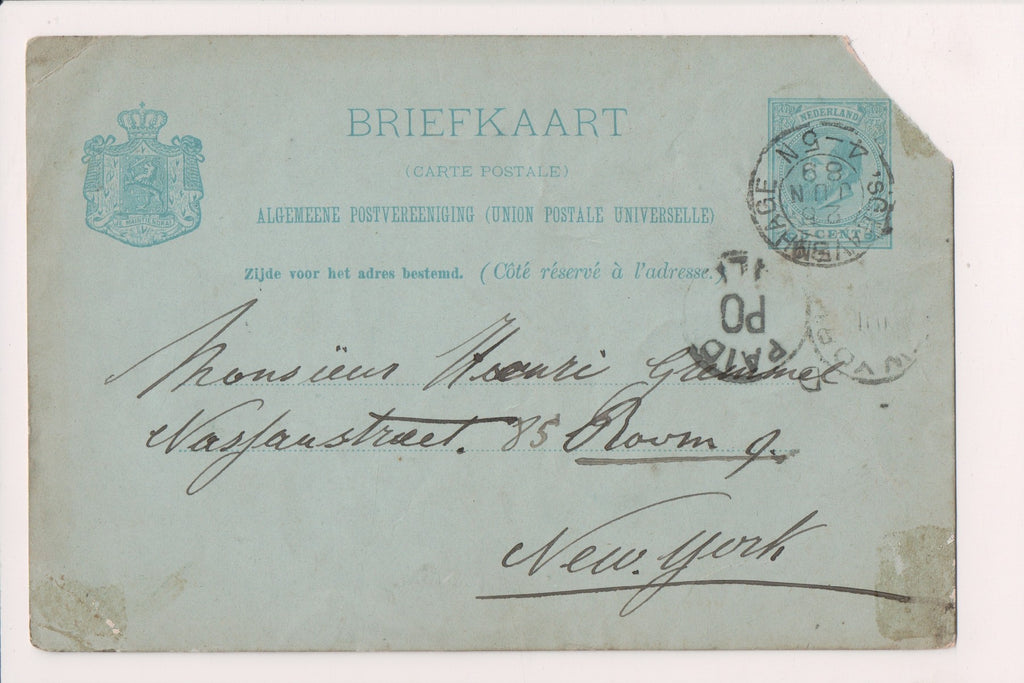 BRIEFKAART
(CARTE POSTALE)
ALGEMEENE POSTVEREENIGING (UNION POSTALE UNIVERSELLE)
Zijde voor het adres bestemd. (Côté réservé à l'adresse.)
JE MAINTIENDRAI
NEDERLAND
5 CENTS
'SGRAVENHAGE
4-5 N
JUN
89
PAID
PO
Monsieur Henri Gremmel
Nassaustraet. 85 Room 9.
New. York